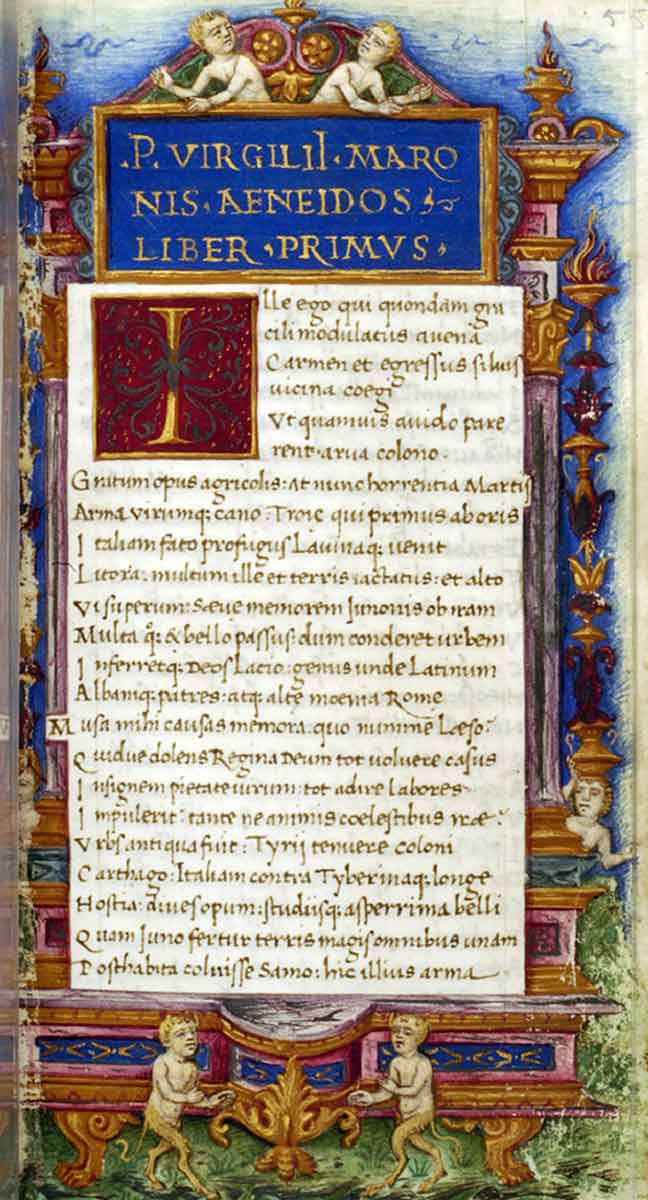 55
.P. VIRGILII. MARO
NIS. AENEIDOS
LIBER. PRIMVS.
Ille ego qui quondam gra
cili modulatus auena
Carmen et egressus siluis
uicina coegi
Vt quamuis auido pare
rent arua colono.
Gratum opus agricolis: at nunc horrentia Martis
Arma virumq; cano: Troie qui primus ab oris
Italiam fato profugus Lauinaq; uenit
Litora: multum ille et terris iactatus: et alto
Vi superum: Saeue memorem Junonis ob iram
Multa q̊; & bello passus: dum conderet urbem
Inferretq; Deos Lacio: genus unde Latinum
Albaniq; patres: atq; alte moenia Rome
Musa mihi causas memora. quo numine Laeso:
Quidue dolens Regina Deum tot voluere casus
Insignem pietate uirum: tot adire Labores
Impulerit: tante ne animis coelestibus irae?
Vrbs antiqua fuit: Tyrij tenuere coloni
Carthago: Italiam contra Tyberinaq; longe
Hostia: diues opum: studiisq; asperrima belli
Quam Juno fertur terris magis omnibus unam
Posthabita coluisse Samo: hic illius arma